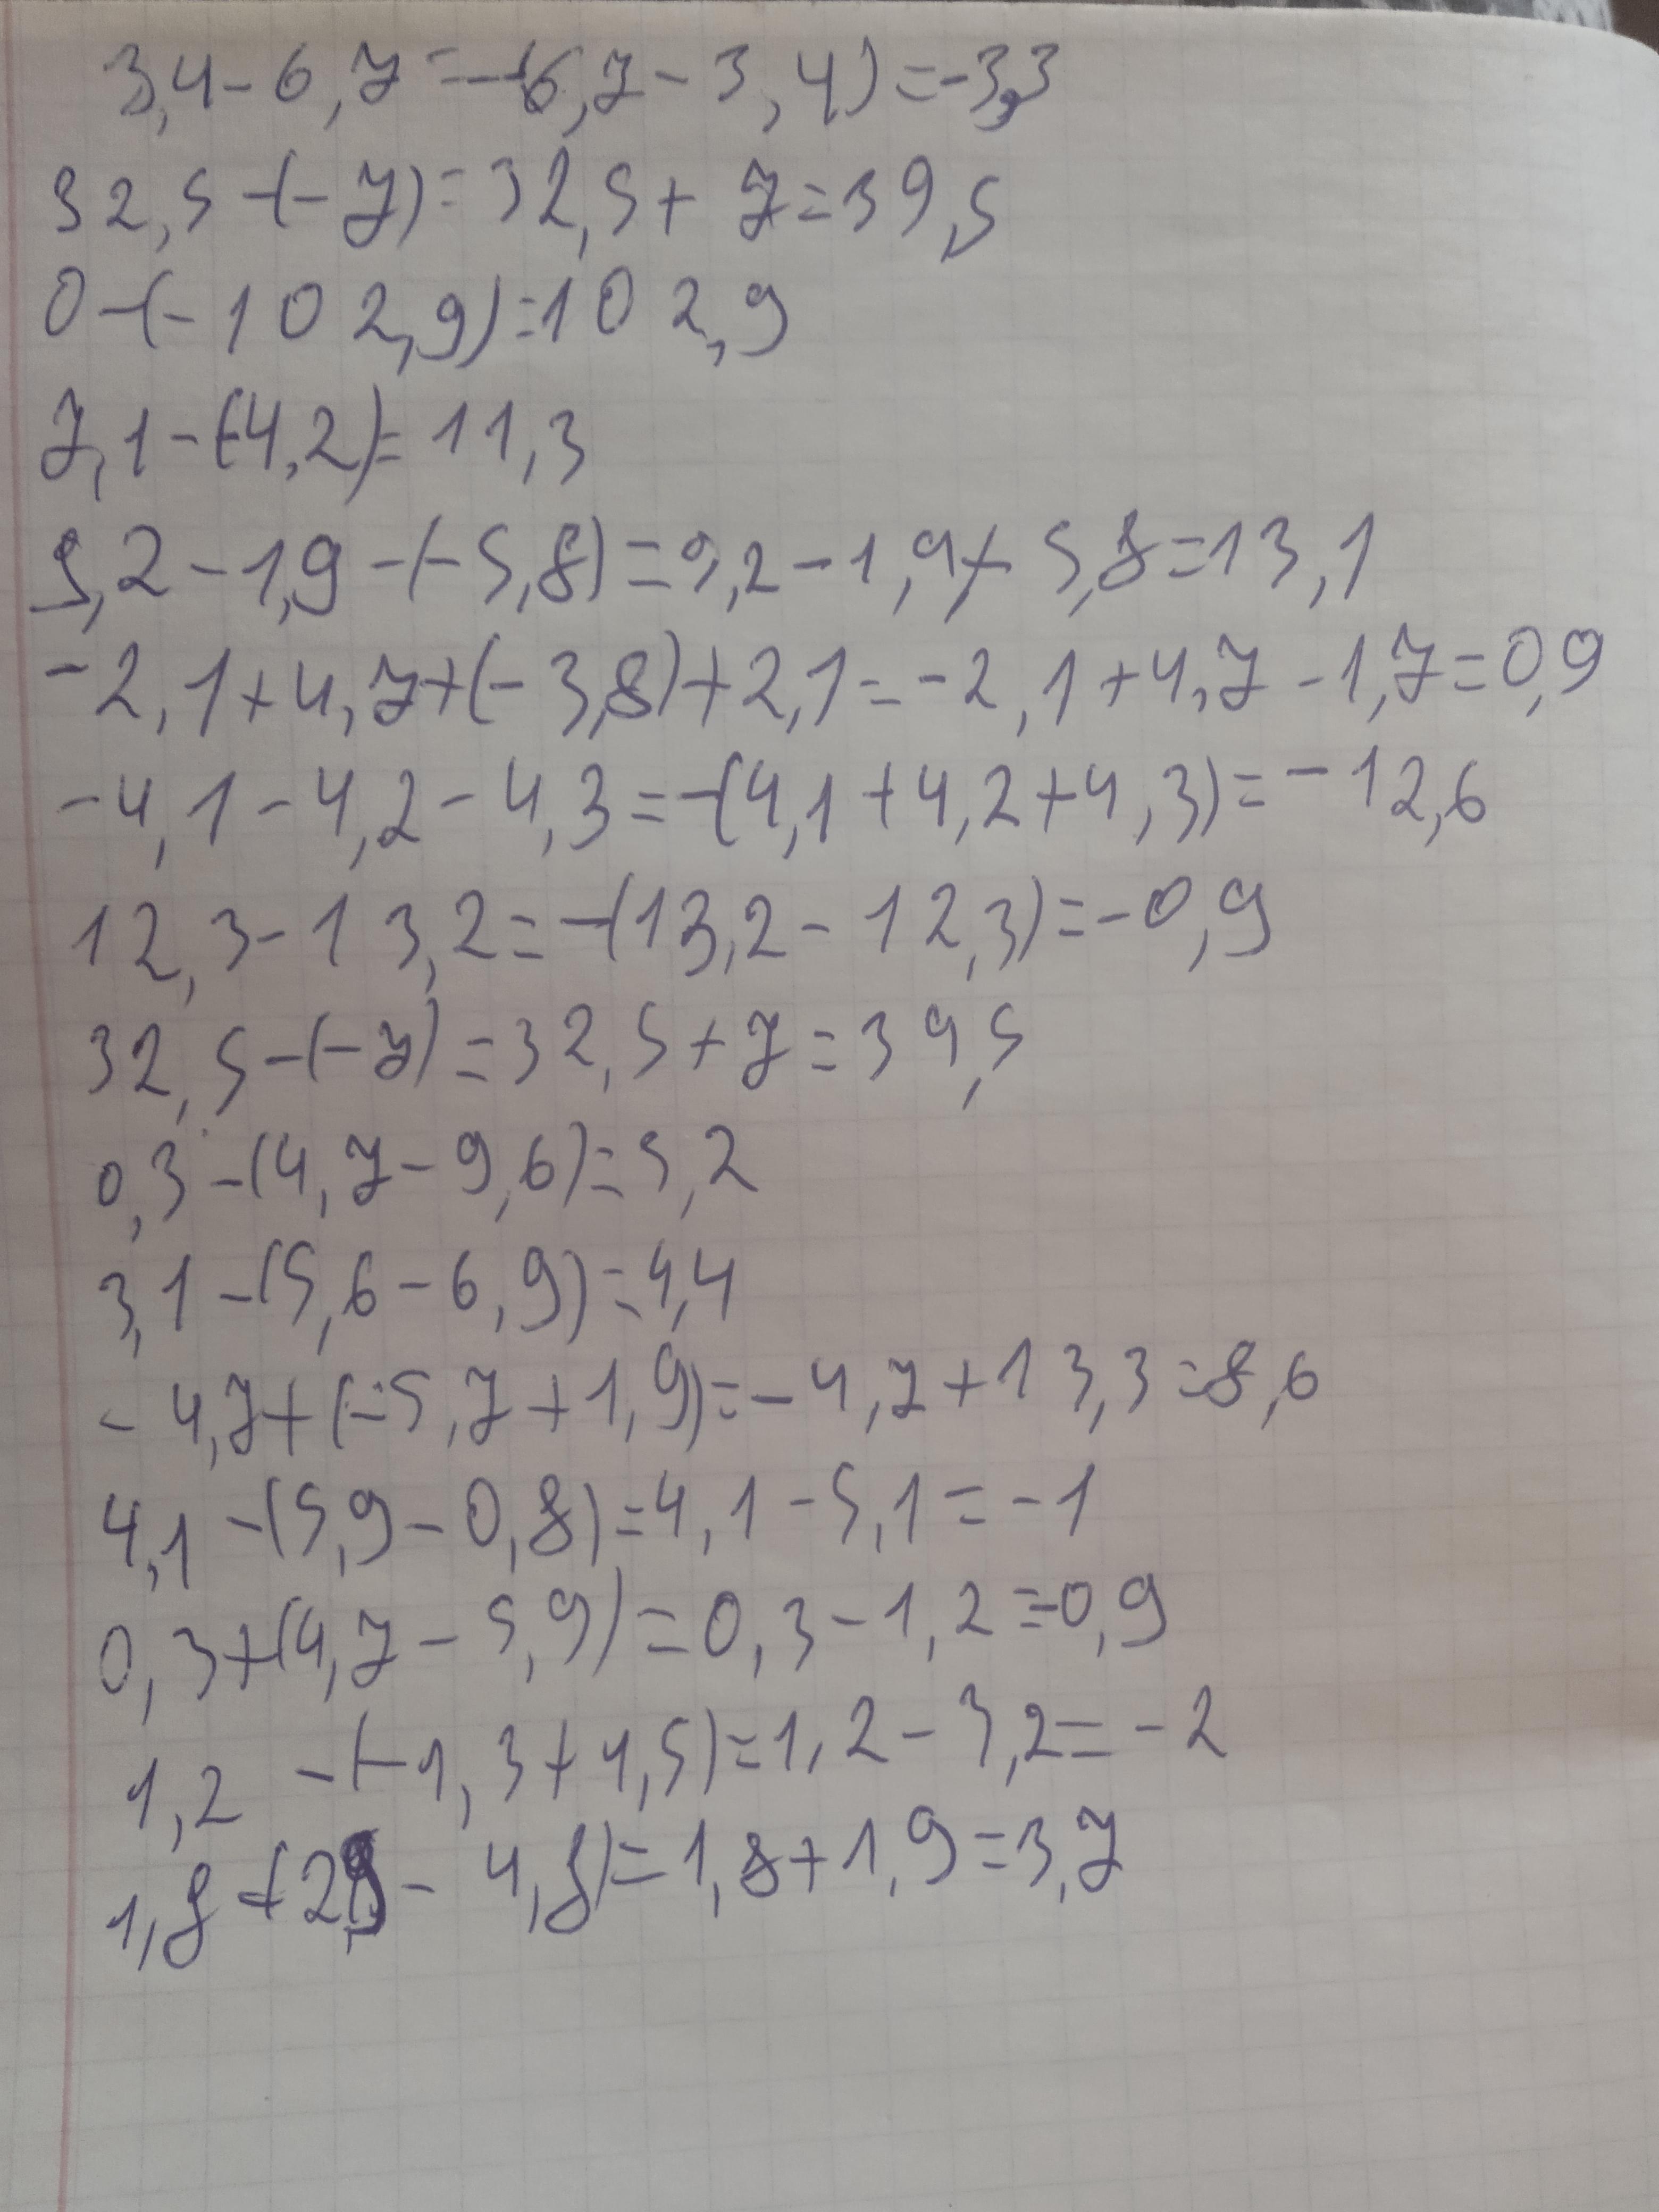 3,4-6,7=-(6,7-3,4)=-3,3
32,5-(-7)=32,5+7=39,5
0-(-102,9)=102,9
7,1-(-4,2)=11,3
9,2-1,9-(-5,8)=9,2-1,9+5,8=13,1
-2,1+4,7+(-3,8)+2,1=-2,1+4,7-1,7=0,9
-4,1-4,2-4,3=-(4,1+4,2+4,3)=-12,6
12,3-13,2=-(13,2-12,3)=-0,9
32,5-(-7)=32,5+7=39,5
0,3-(4,7-9,6)=5,2
3,1-(5,6-6,9)=4,4
-4,7+(-5,7+1,9)=-4,7+13,3=8,6
4,1-(5,9-0,8)=4,1-5,1=-1
0,3+(4,7-5,9)=0,3-1,2=-0,9
1,2-(-1,3+4,5)=1,2-3,2=-2
1,8-(2,9-4,8)=1,8+1,9=3,7